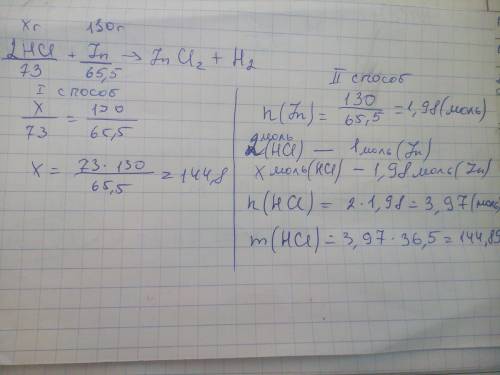 Xг 130г
2HCl + Zn → ZnCl₂ + H₂
73 65,5
I способ
X/73 = 130/65,5
X = 73·130/65,5 = 144,8
II способ
n(Zn) = 130/65,5 = 1,98(моль)
2моль(HCl) — 1моль(Zn)
X моль(HCl) — 1,98моль(Zn)
n(HCl) = 2·1,98 = 3,97(моль)
m(HCl) = 3,97·36,5 = 144,8